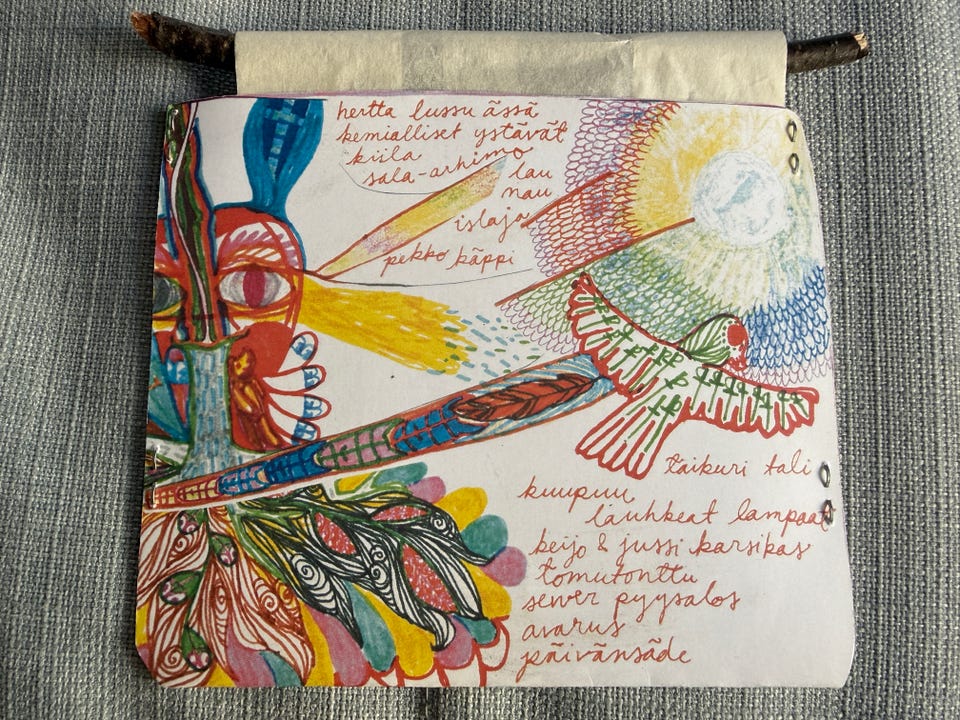 hertta lussu ässä
kemialliset ystävät
kiila
sala-arhimo
lau
nau
islaja
pekko käppi
taikuri tali
kuupuu
lauhkeat lampaat
keijo & jussi karsikas
tomutonttu
sewer pyysalos
avarus
päivänsäde